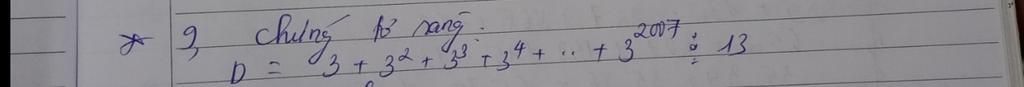 * 9, Chứng tỏ rằng:
D = 3 + 3² + 3³ + 3⁴ + .. + 3²⁰⁰⁷ ⋮ 13